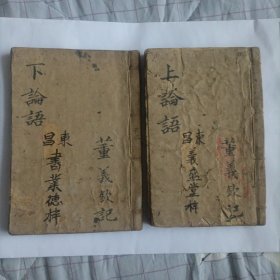 董義欽記
東昌義堂梓
上論語
董義欽記
東昌書業德梓
下論語